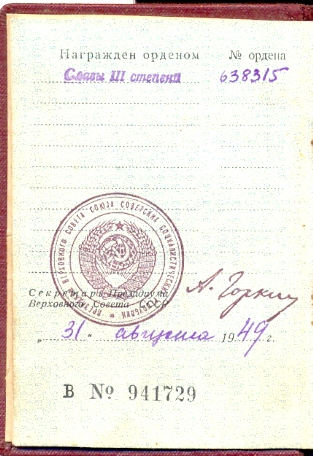 Награжден орденом № ордена
Славы III степени 638315
ПРЕЗИДИУМ ВЕРХОВНОГО СОВЕТА СОЮЗА СОВЕТСКИХ СОЦИАЛИСТИЧЕСКИХ РЕСПУБЛИК
А. Горкин
Секретарь Президиума
Верховного Совета СССР
„31" августа 1949 г.
В № 941729